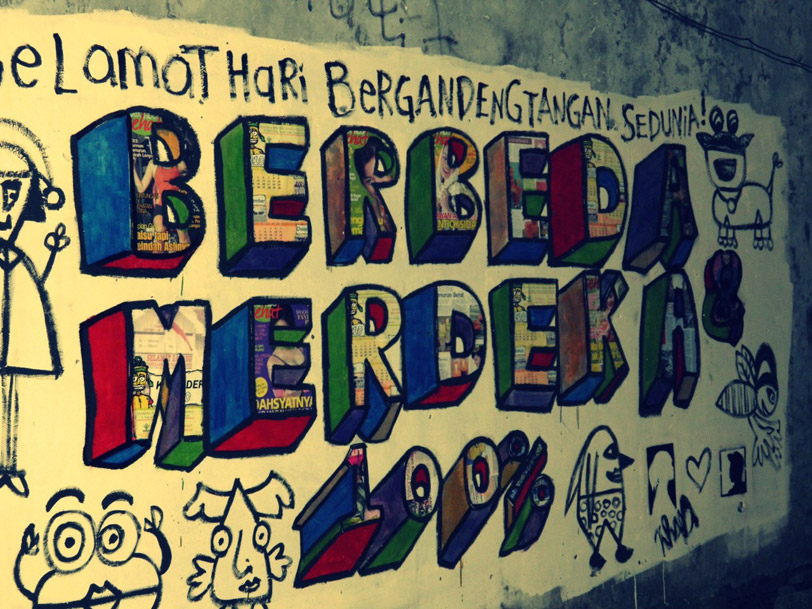 SeLamaT HaRi BeRGANDENGTANGAN SEDUNIA!
BERBEDA
&
MERDEKA
100%